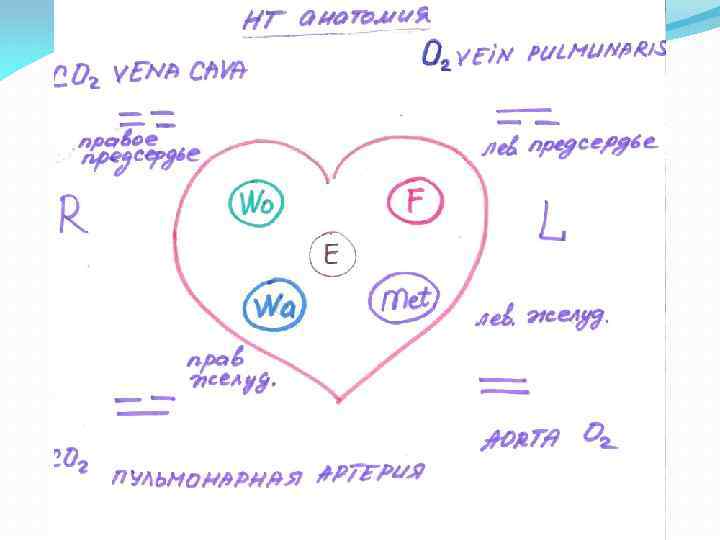 НТ анатомия
CO2 VENA CAVA
O2 VEIN PULMUNARIS
правое
предсердье
лев. предсердье
R
Wo
F
L
E
Wa
Met
лев. желуд.
прав
желуд.
AORTA O2
CO2
ПУЛЬМОНАРНАЯ АРТЕРИЯ